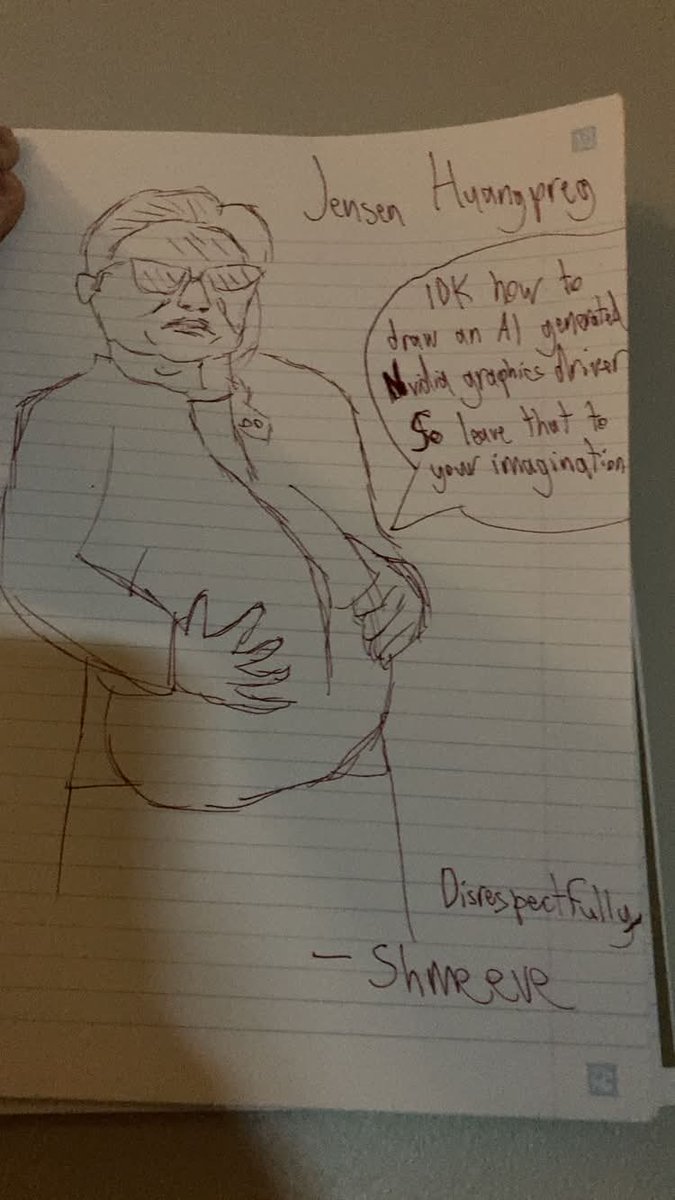 Jensen Huangpreg
IDK how to
draw an AI generated
Nvidia graphics driver
So leave that to
your imagination
Disrespectfully,
— Shmeeve